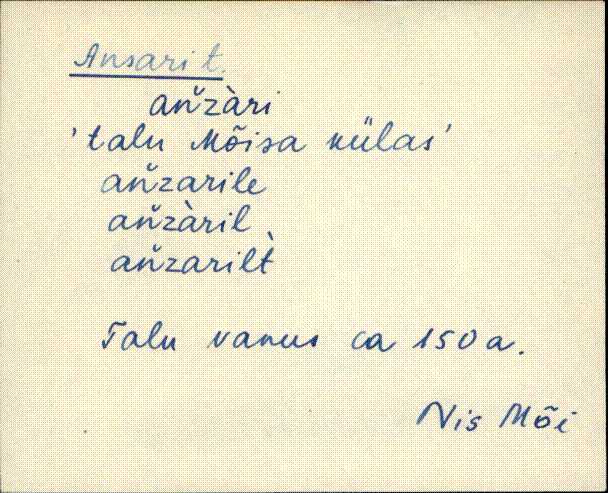 Ansari t.
an̆zàri
'talu Mõisa külas'
an̆zarile
an̆zàril
an̆zarilt̀
Talu vanus ca 150 a.
Nis Mõi